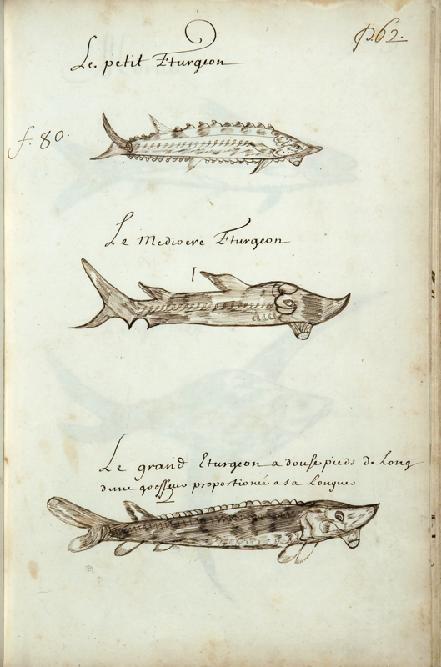 P. 62.
Le petit Eturgeon
f. 80.
Le Mediocre Eturgeon
Le grand Eturgeon a douse pieds de Long
dune grosseur proportionée a sa Longueur